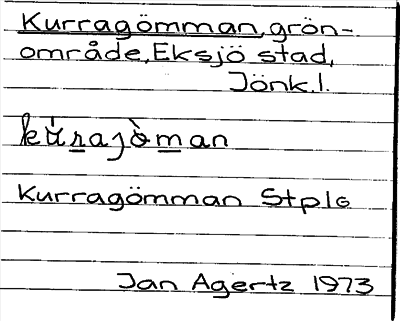 Kurragömman, grön-
område, Eksjö stad,
Jönk. l.
kúrajö̀man
Kurragömman StplG
Jan Agertz 1973